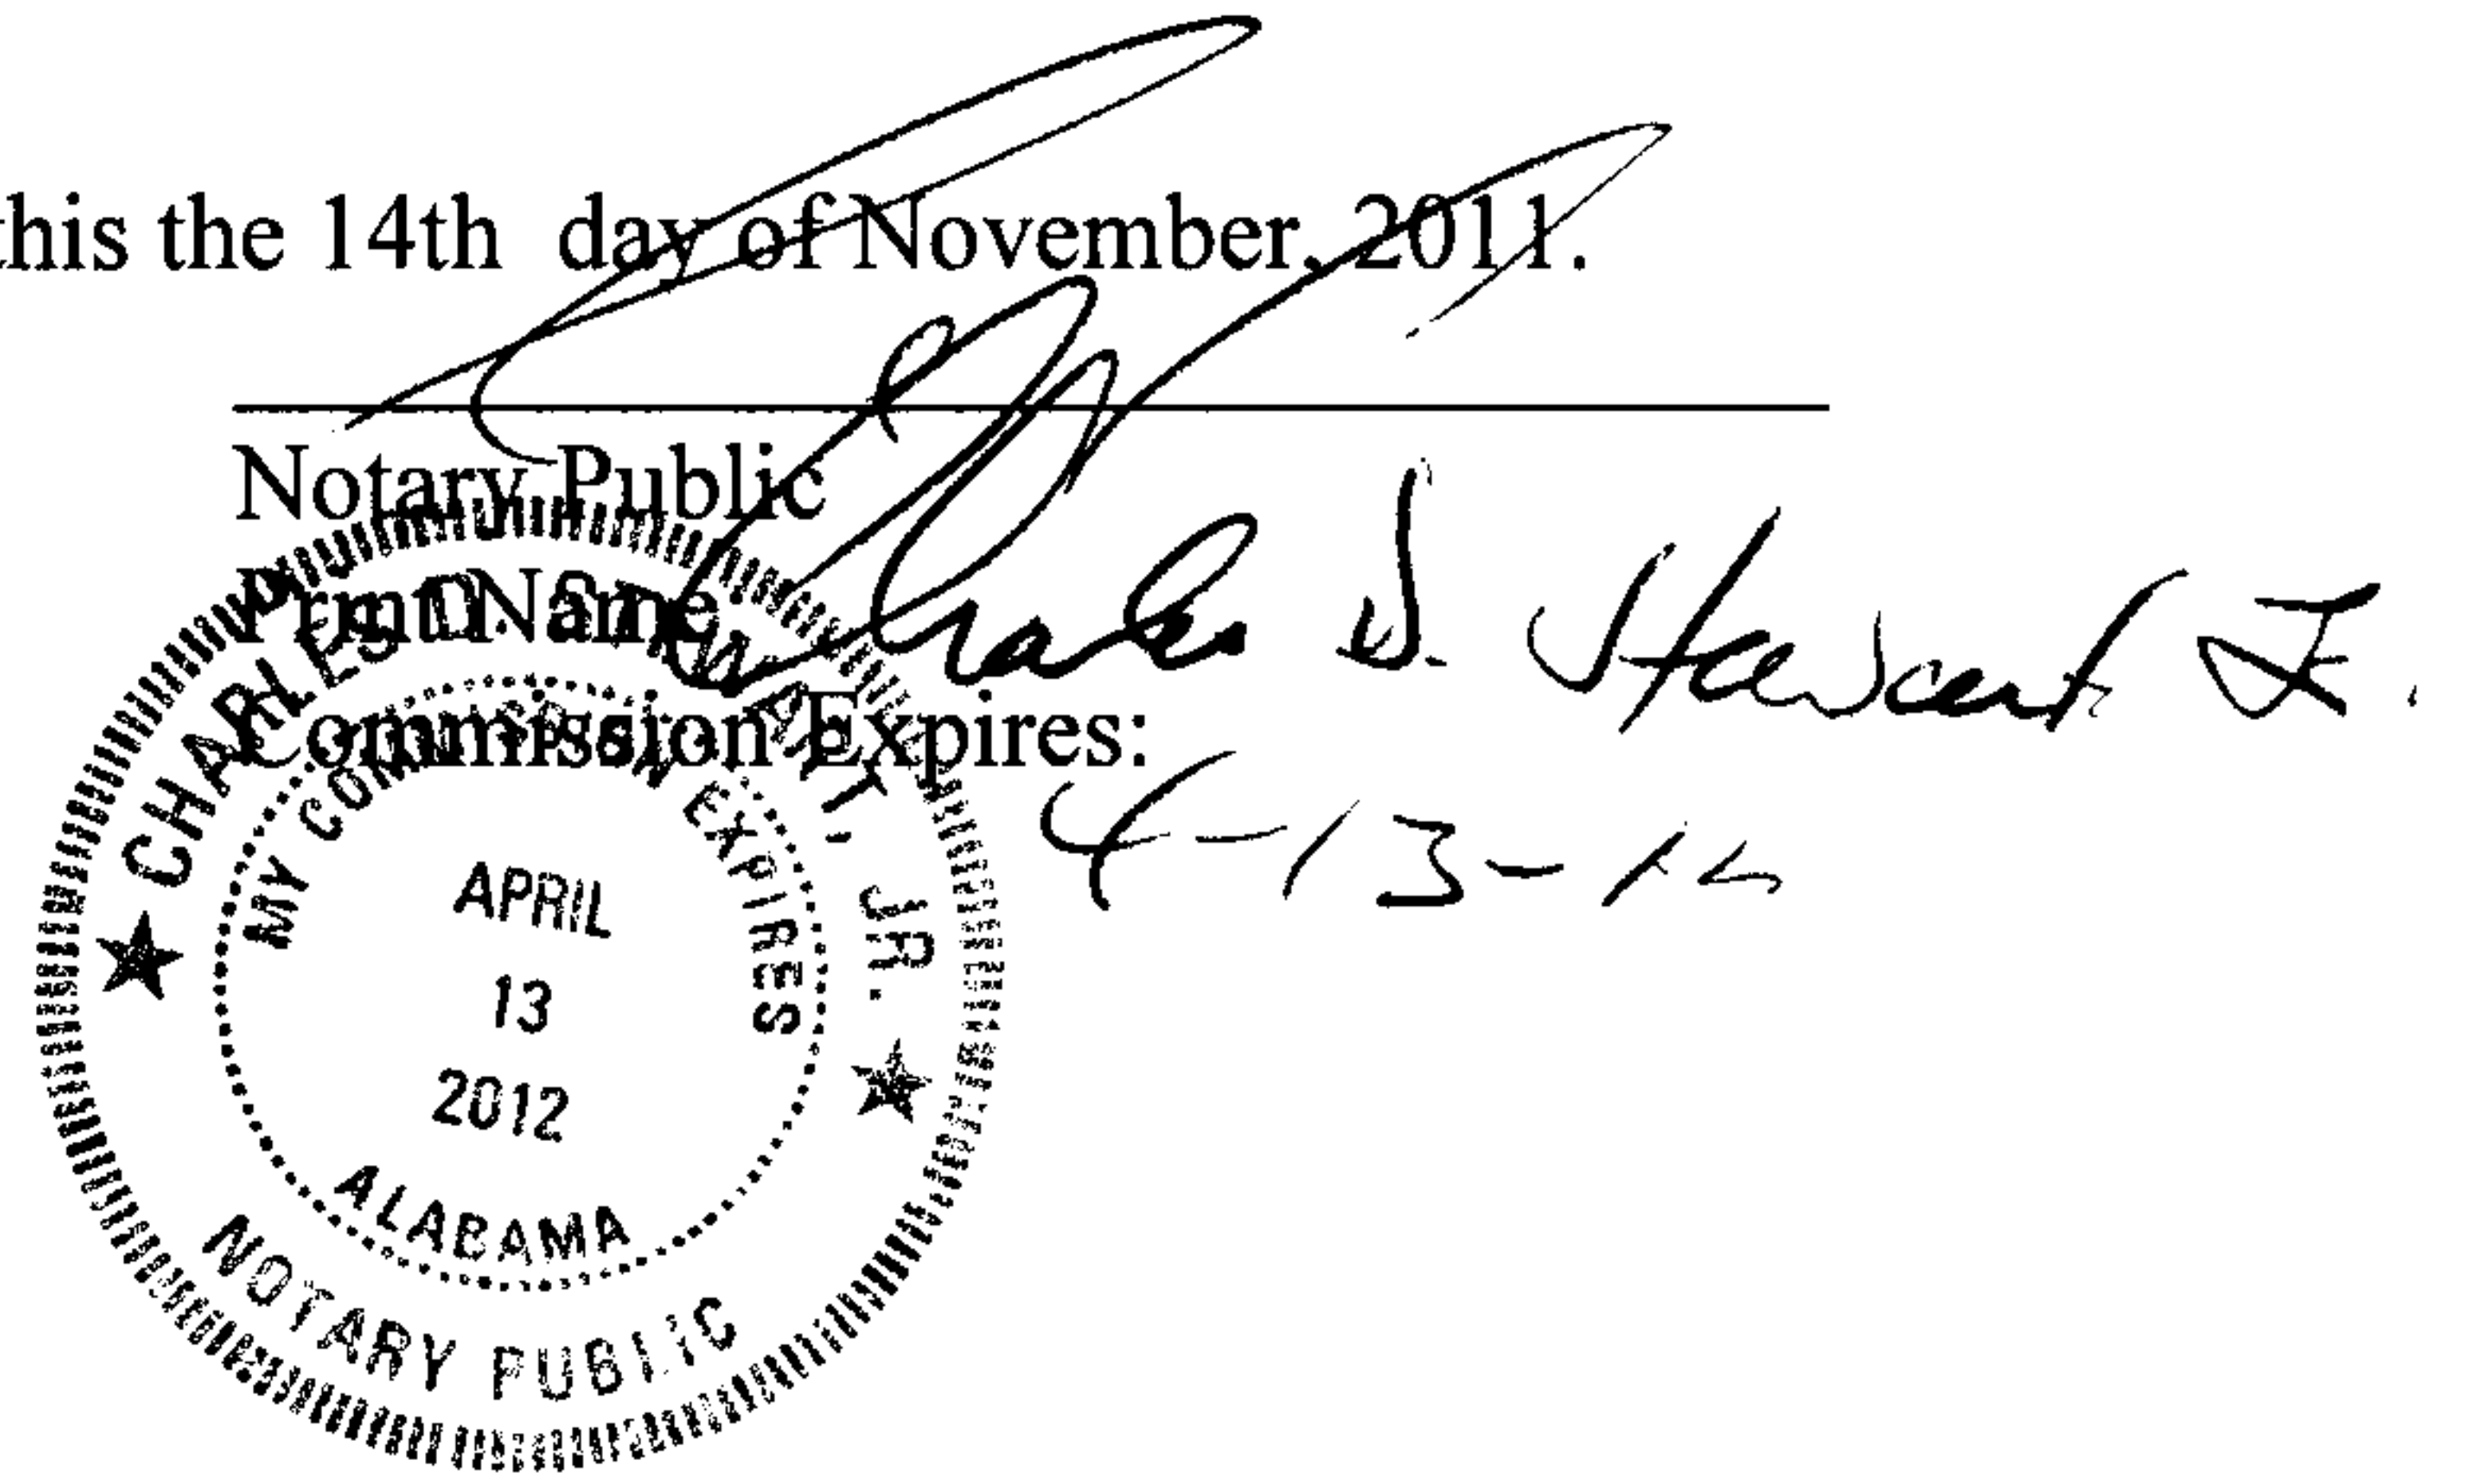 this the 14th day of November, 2011.
Notary Public
Print Name: Charles D. Stewart Jr.
Commission Expires:
4-13-12
CHARLES D. STEWART, JR.
MY COMMISSION EXPIRES
APRIL
13
2012
ALABAMA
NOTARY PUBLIC